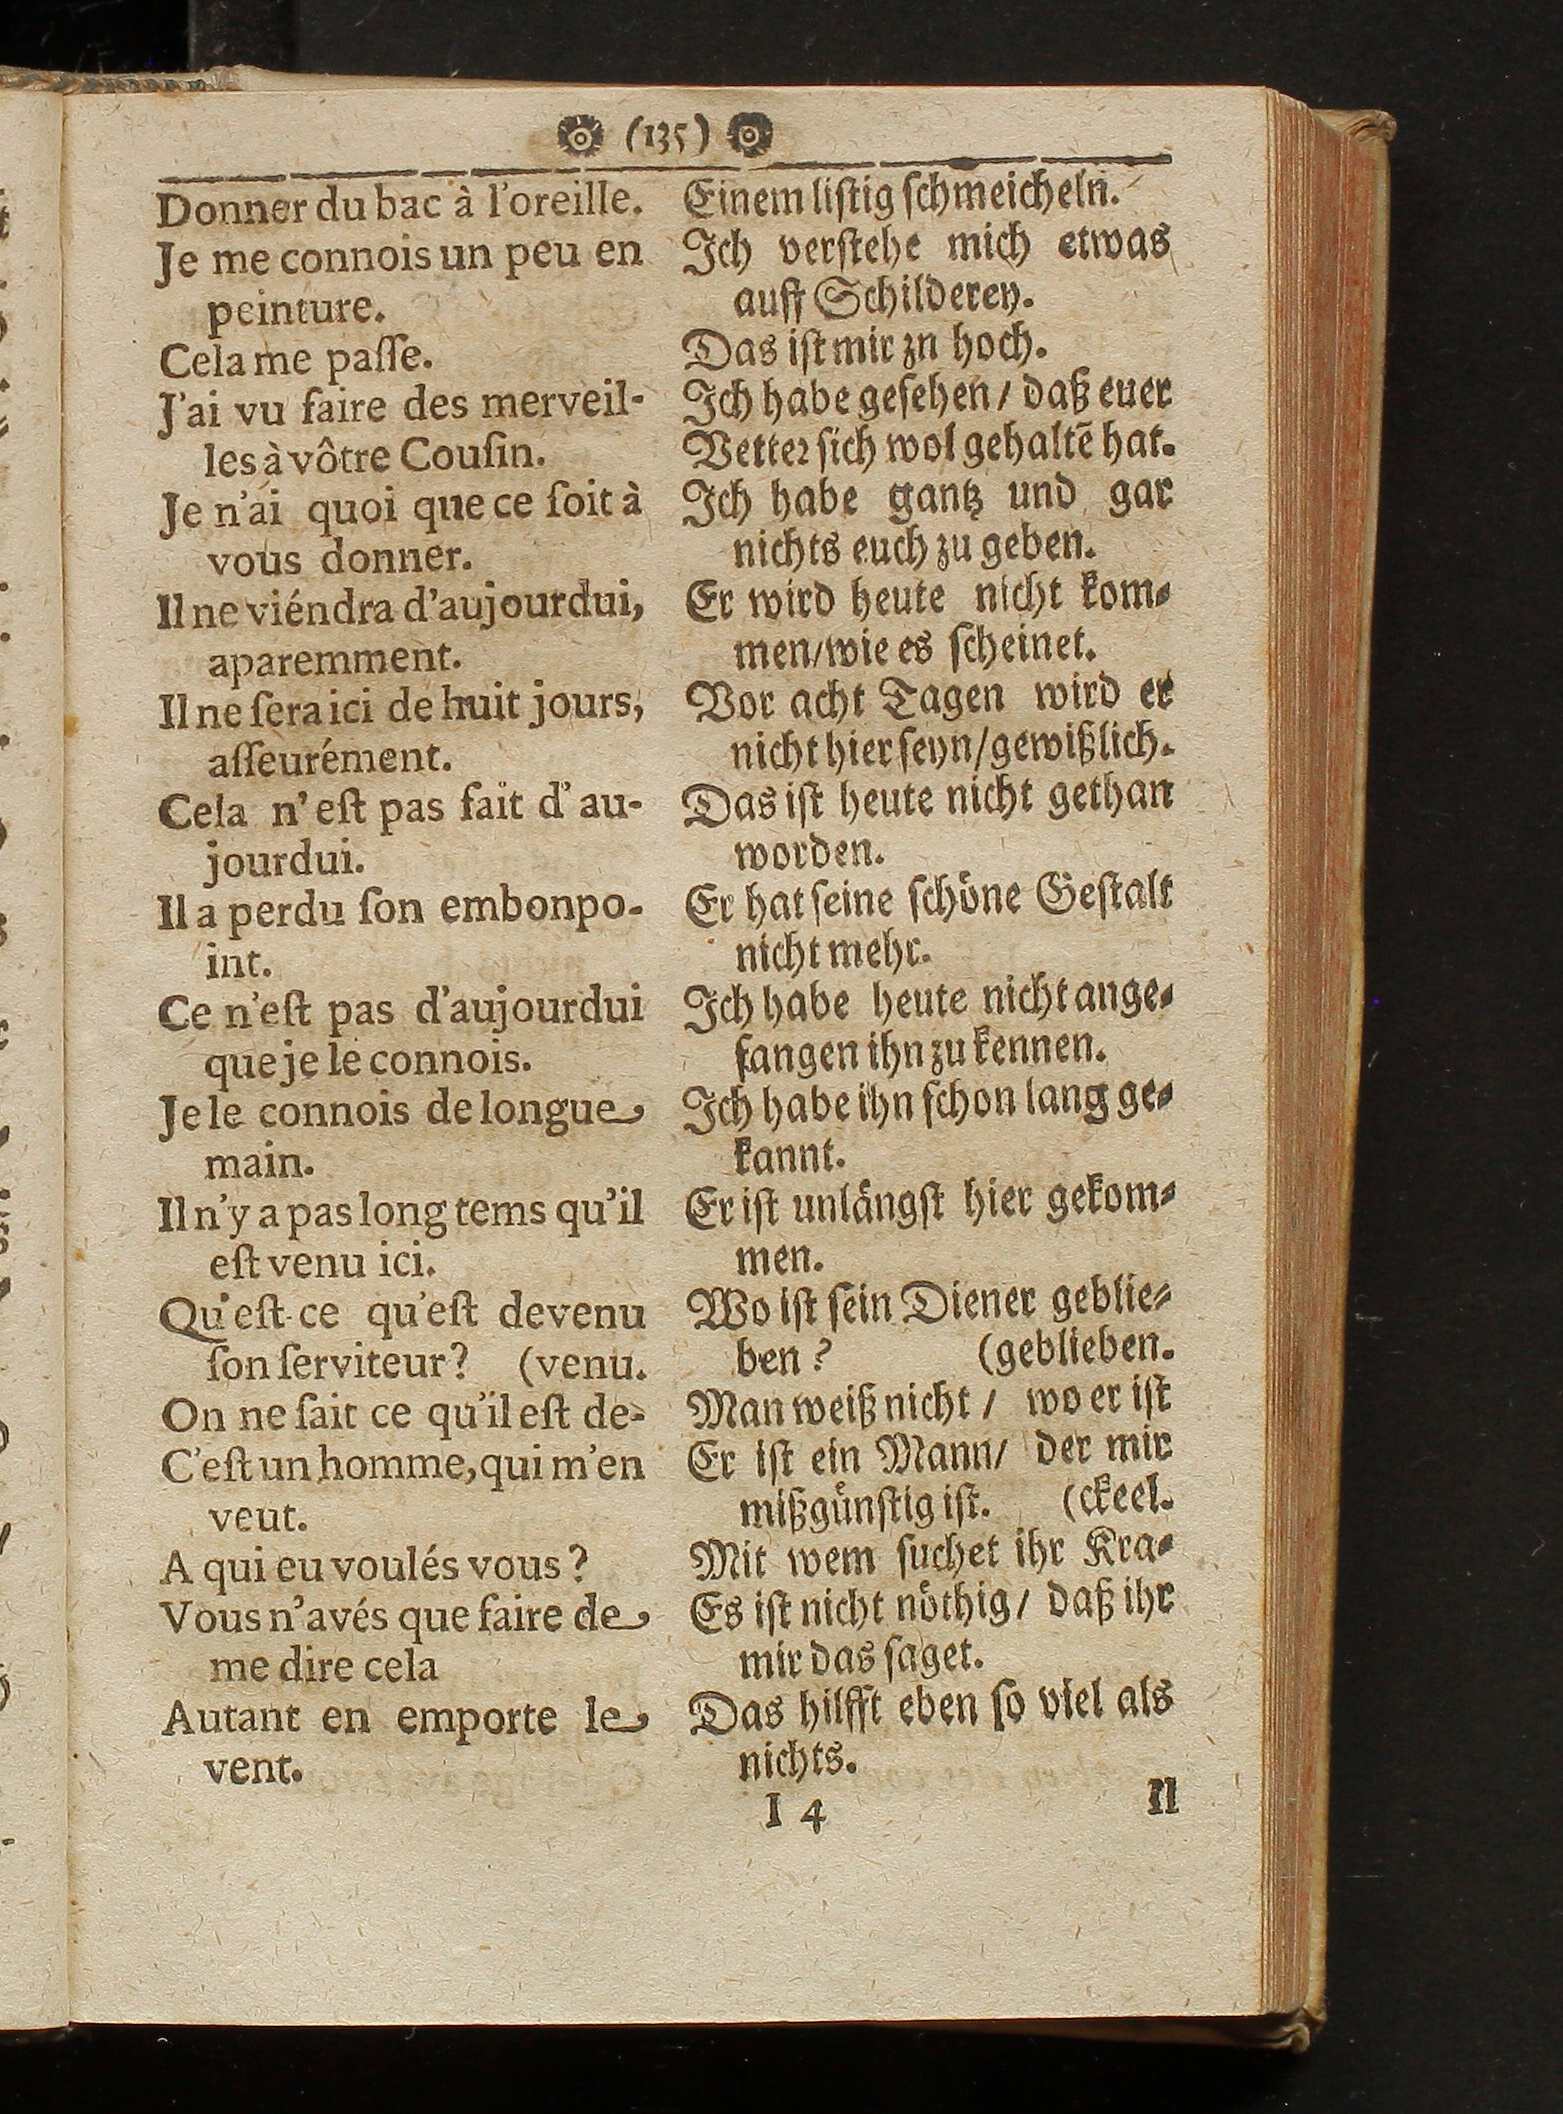 (135)
Donner du bac à l'oreille.
Je me connois un peu en
peinture.
Cela me paſſe.
J'ai vu faire des merveil-
les à vôtre Couſin.
Je n'ai quoi que ce ſoit à
vous donner.
Il ne viéndra d'aujourdui,
aparemment.
Il ne ſera ici de huit jours,
aſſeurément.
Cela n'eſt pas fait d'au-
jourdui.
Il a perdu ſon embonpo-
int.
Ce n'eſt pas d'aujourdui
que je le connois.
Je le connois de longue
main.
Il n'y a pas long tems qu'il
eſt venu ici.
Qu'eſt-ce qu'eſt devenu
ſon ſerviteur? (venu.
On ne ſait ce qu'il eſt de-
C'eſt un homme, qui m'en
veut.
A qui eu voulés vous?
Vous n'avés que faire de
me dire cela
Autant en emporte le
vent.
Einem liſtig ſchmeicheln.
Ich verſtehe mich etwas
auff Schilderey.
Das iſt mir zn hoch.
Ich habe geſehen / daß euer
Vetter ſich wol gehaltẽ hat.
Ich habe gantz und gar
nichts euch zu geben.
Er wird heute nicht kom⸗
men / wie es ſcheinet.
Vor acht Tagen wird er
nicht hier ſeyn / gewißlich.
Das iſt heute nicht gethan
worden.
Er hat ſeine ſchöne Geſtalt
nicht mehr.
Ich habe heute nicht ange⸗
fangen ihn zu kennen.
Ich habe ihn ſchon lang ge⸗
kannt.
Er iſt unlängſt hier gekom⸗
men.
Wo iſt ſein Diener geblie⸗
ben? (geblieben.
Man weiß nicht / wo er iſt
Er iſt ein Mann / der mir
mißgünſtig iſt. (ckeel.
Mit wem ſuchet ihr Kra⸗
Es iſt nicht nöthig / daß ihr
mir das ſaget.
Das hilfft eben ſo viel als
nichts.
I 4
Il